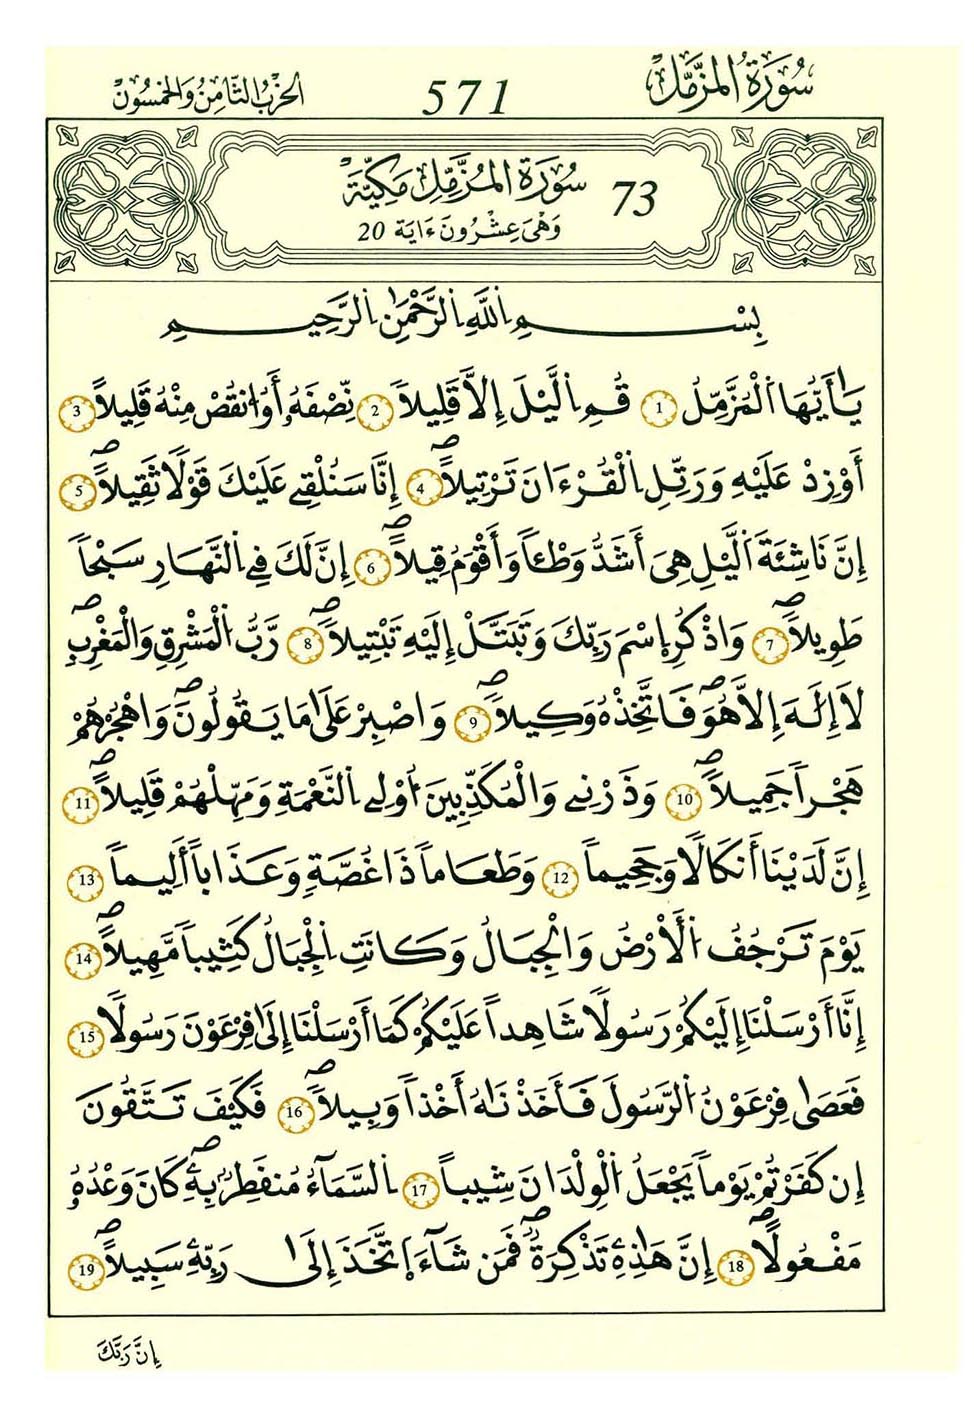 سُورَةُ المُزَّمِّل
571
الحِزْبُ الثَّامِنُ وَالخَمْسُون
سُورَةُ المُزَّمِّلِ مَكِّيَّة 73
وَهْيَ عِشْرُونَ ءَايَة 20
بِسْمِ اِللَّهِ اِلرَّحْمَٰنِ اِلرَّحِيمِ
يَٰٓأَيُّهَا اَلْمُزَّمِّلُ 1 قُمِ اِلَّيْلَ إِلَّا قَلِيلاً 2 نِّصْفَهُۥٓ أَوُ اُنقُصْ مِنْهُ قَلِيلاً 3
أَوْ زِدْ عَلَيْهِ وَرَتِّلِ اِلْقُرْءَانَ تَرْتِيلاً 4 إِنَّا سَنُلْقِے عَلَيْكَ قَوْلاً ثَقِيلاً 5
إِنَّ نَاشِئَةَ اَلَّيْلِ هِيَ أَشَدُّ وَطْـٔاً وَأَقْوَمُ قِيلاً 6 إِنَّ لَكَ فِے اِلنَّهَارِ سَبْحاً
طَوِيلاً 7 وَاذْكُرِ اِسْمَ رَبِّكَ وَتَبَتَّلْ إِلَيْهِ تَبْتِيلاً 8 رَّبُّ اُلْمَشْرِقِ وَالْمَغْرِبِ
لَآ إِلَٰهَ إِلَّا هُوَ فَاتَّخِذْهُ وَكِيلاً 9 وَاصْبِرْ عَلَىٰ مَا يَقُولُونَ وَاهْجُرْهُمْ
هَجْراً جَمِيلاً 10 وَذَرْنِے وَالْمُكَذِّبِينَ أُوْلِے اِلنَّعْمَةِ وَمَهِّلْهُمْ قَلِيلاً 11
إِنَّ لَدَيْنَآ أَنكَالاً وَجَحِيماً 12 وَطَعَاماً ذَا غُصَّةٍ وَعَذَاباً أَلِيماً 13
يَوْمَ تَرْجُفُ اُلْأَرْضُ وَالْجِبَالُ وَكَانَتِ اِلْجِبَالُ كَثِيباً مَّهِيلاً 14
إِنَّآ أَرْسَلْنَآ إِلَيْكُمْ رَسُولاً شَٰهِداً عَلَيْكُمْ كَمَآ أَرْسَلْنَآ إِلَىٰ فِرْعَوْنَ رَسُولاً 15
فَعَصَىٰ فِرْعَوْنُ اُلرَّسُولَ فَأَخَذْنَٰهُ أَخْذاً وَبِيلاً 16 فَكَيْفَ تَتَّقُونَ
إِن كَفَرْتُمْ يَوْماً يَجْعَلُ اُلْوِلْدَٰنَ شِيباً 17 اِلسَّمَآءُ مُنفَطِرٌۢ بِهِۦ كَانَ وَعْدُهُۥ
مَفْعُولاً 18 إِنَّ هَٰذِهِۦ تَذْكِرَةٌ فَمَن شَآءَ اَتَّخَذَ إِلَىٰ رَبِّهِۦ سَبِيلاً 19
إِنَّ رَبَّكَ